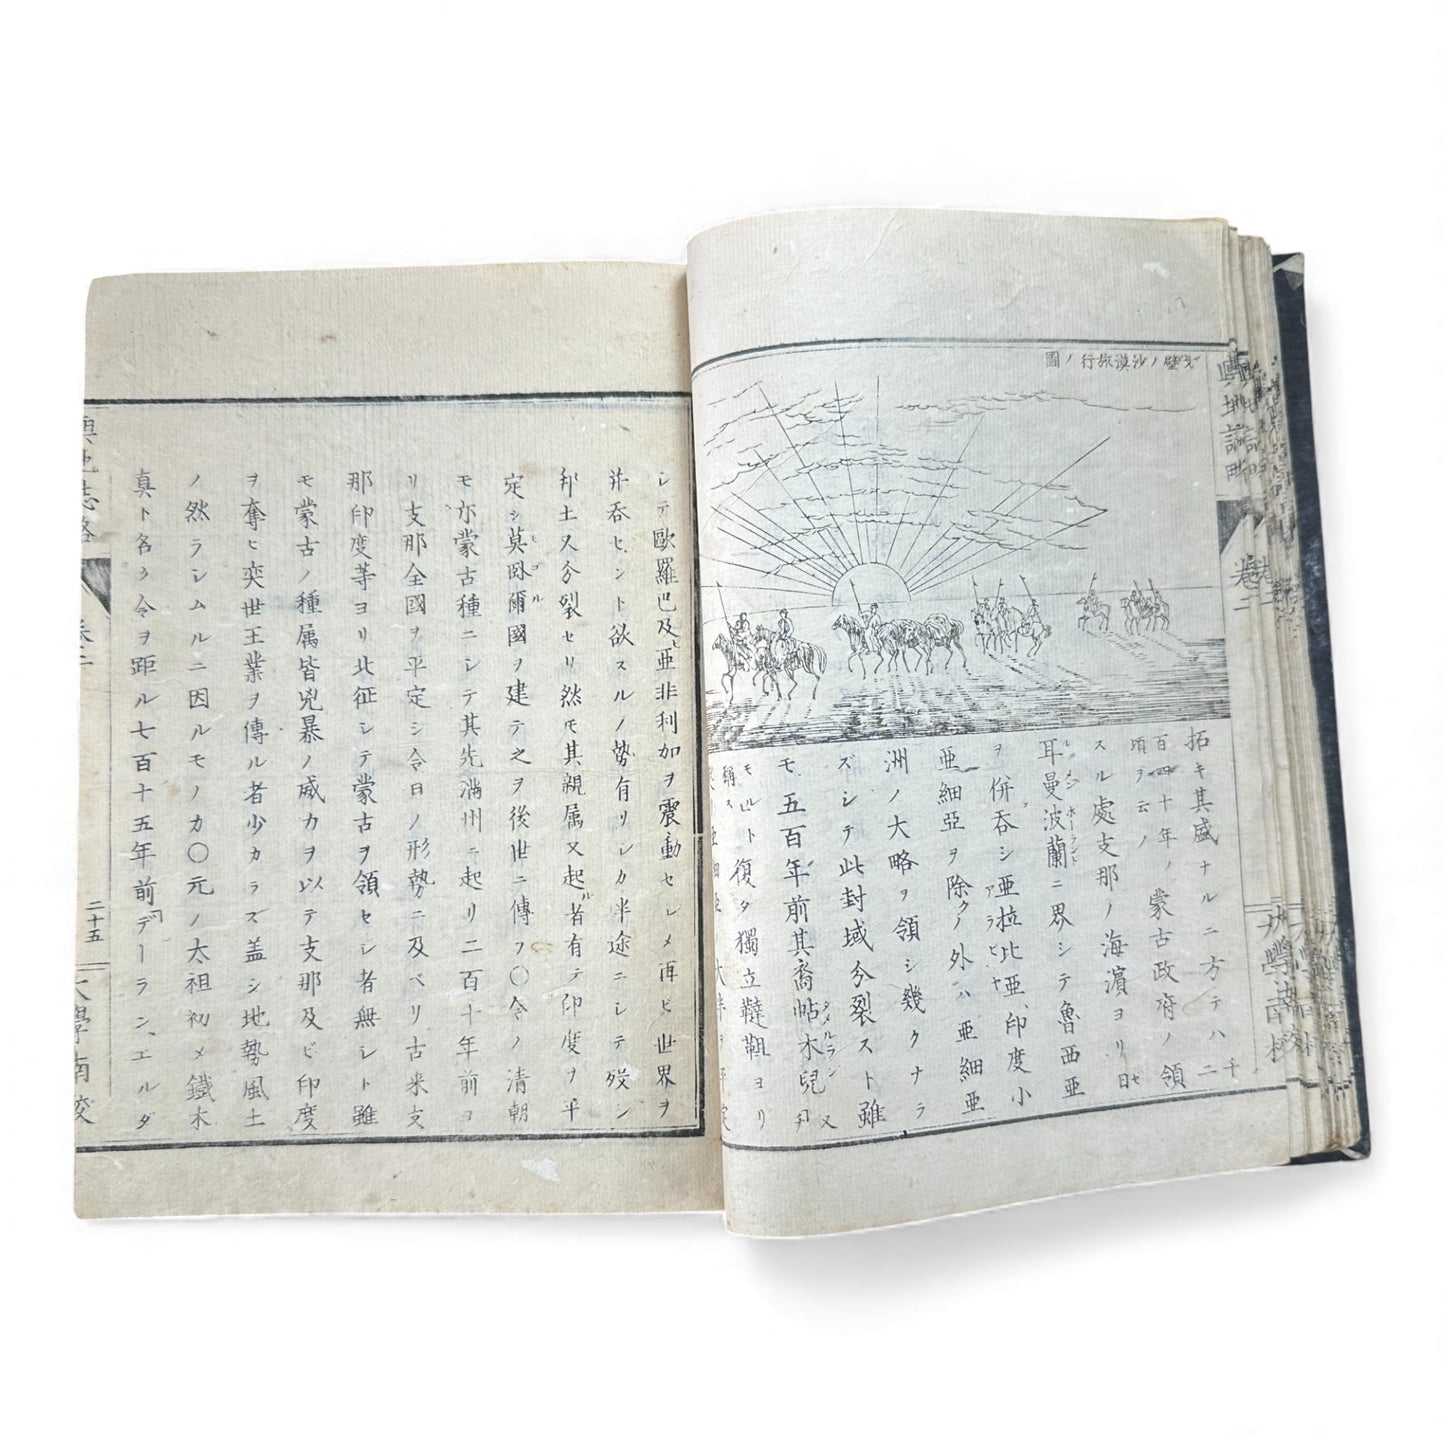 戈壁ノ沙漠旅行ノ圖
拓キ其盛ナルニ方テハ二千
百四十年ノ頃ヲ云ノ蒙古政府ノ領
スル處支那ノ海濱ヨリ日
耳曼波蘭ニ界シテ魯西亜
ゼルマン ポーランド
ヲ併吞シ亜拉比亜、印度小
アラビヤ
亜細亜ヲ除ク外ハ亜細亜
洲ノ大略ヲ領シ幾クナラ
ズシテ此封域分裂スト雖
モ五百年前其裔帖木兒又
タメルラン
モルト復タ獨立韃靼ヨリ
稱ス
亜細亜ノ大半ヲ平定
シテ歐羅巴及亜非利加ヲ震動セシメ再ビ世界ヲ
并吞セント欲スルノ勢有リシカ半途ニシテ歿シ
邦土又分裂セリ然モ其親属又起ル者有テ印度ヲ平
定シ莫臥爾國ヲ建テ之ヲ後世ニ傳フ〇今ノ清朝
モゴル
モ亦蒙古種ニシテ其先滿州ニ起リ二百十年前ヨ
リ支那全國ヲ平定シ今日ノ形勢ニ及ベリ古米支
那印度等ヨリ北征シテ蒙古ヲ領セシ者無シト雖
モ蒙古ノ種属皆兇暴ノ威力ヲ以テ支那及ビ印度
ヲ奪ヒ奕世王業ヲ傳ル者少カラズ蓋シ地勢風土
ノ然ラシムルニ因ルモノカ〇元ノ太祖初メ鐵木
真ト名ク今ヲ距ル七百十五年前デーラン、エルダ
輿地誌略
卷二
二十五
大學南校
輿地誌略
卷二
大學南校